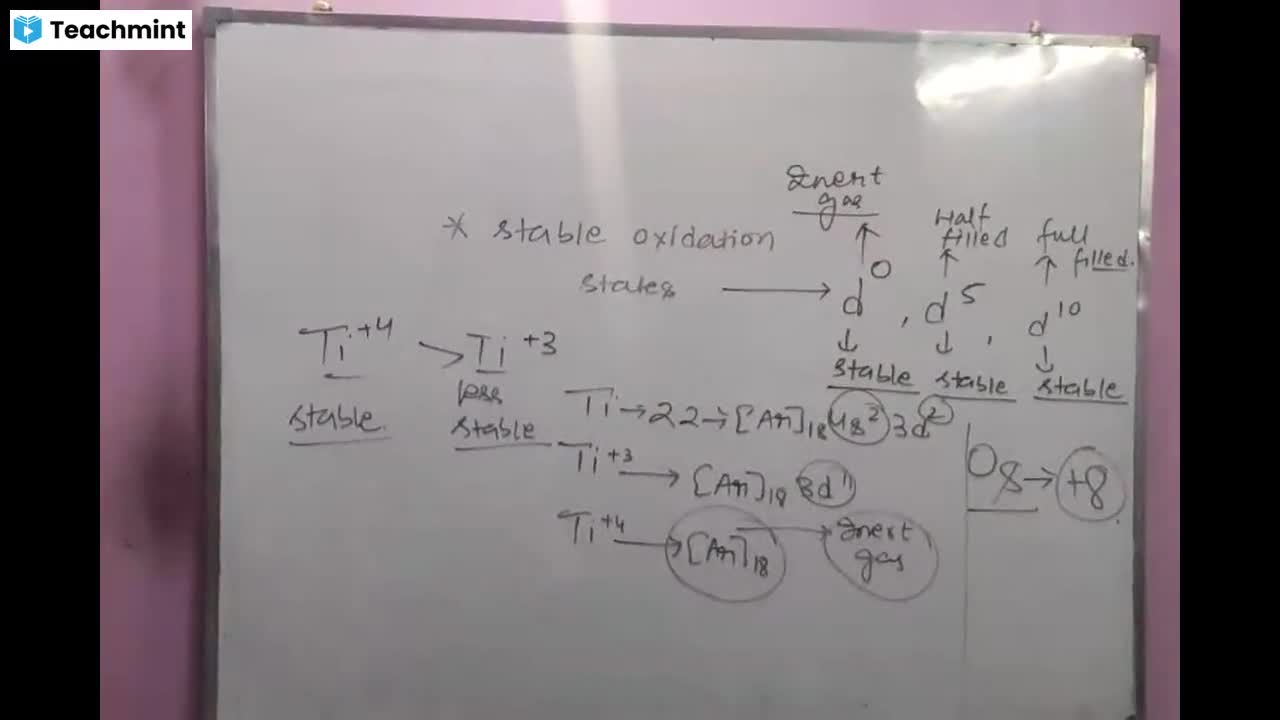 Teachmint
Inert
gas
* stable oxidation
states → d⁰, d⁵, d¹⁰
Half
filled
full
filled.
stable stable stable
Ti⁺⁴ > Ti⁺³
stable
less
stable
Ti → 22 → [Ar]₁₈ 4s² 3d²
Ti⁺³ → [Ar]₁₈ 3d¹
Ti⁺⁴ → [Ar]₁₈ → Inert
gas
Os → +8